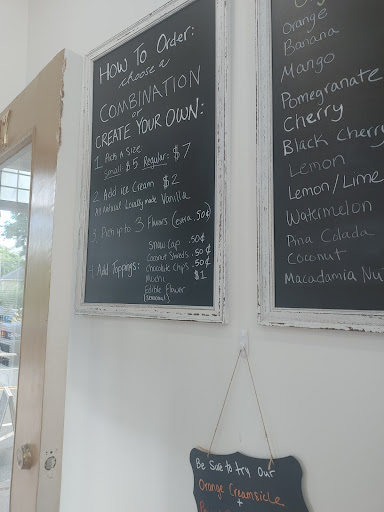 How To Order:
choose a
COMBINATION
or
CREATE YOUR OWN:
1. Pick A Size
Small: $5 Regular: $7
2. Add Ice Cream $2
All Natural Locally made Vanilla
3. Pick up to 3 Flavors (extra .50¢)
4. Add Toppings:
Snow Cap .50¢
Coconut Shreds .50¢
Chocolate Chips .50¢
Mochi $1
Edible Flower
(seasonal)
Orange
Banana
Mango
Pomegranate
Cherry
Black Cherry
Lemon
Lemon/Lime
Watermelon
Pina Colada
Coconut
Macadamia Nu
Be Sure to try Our
Orange Creamsicle
+